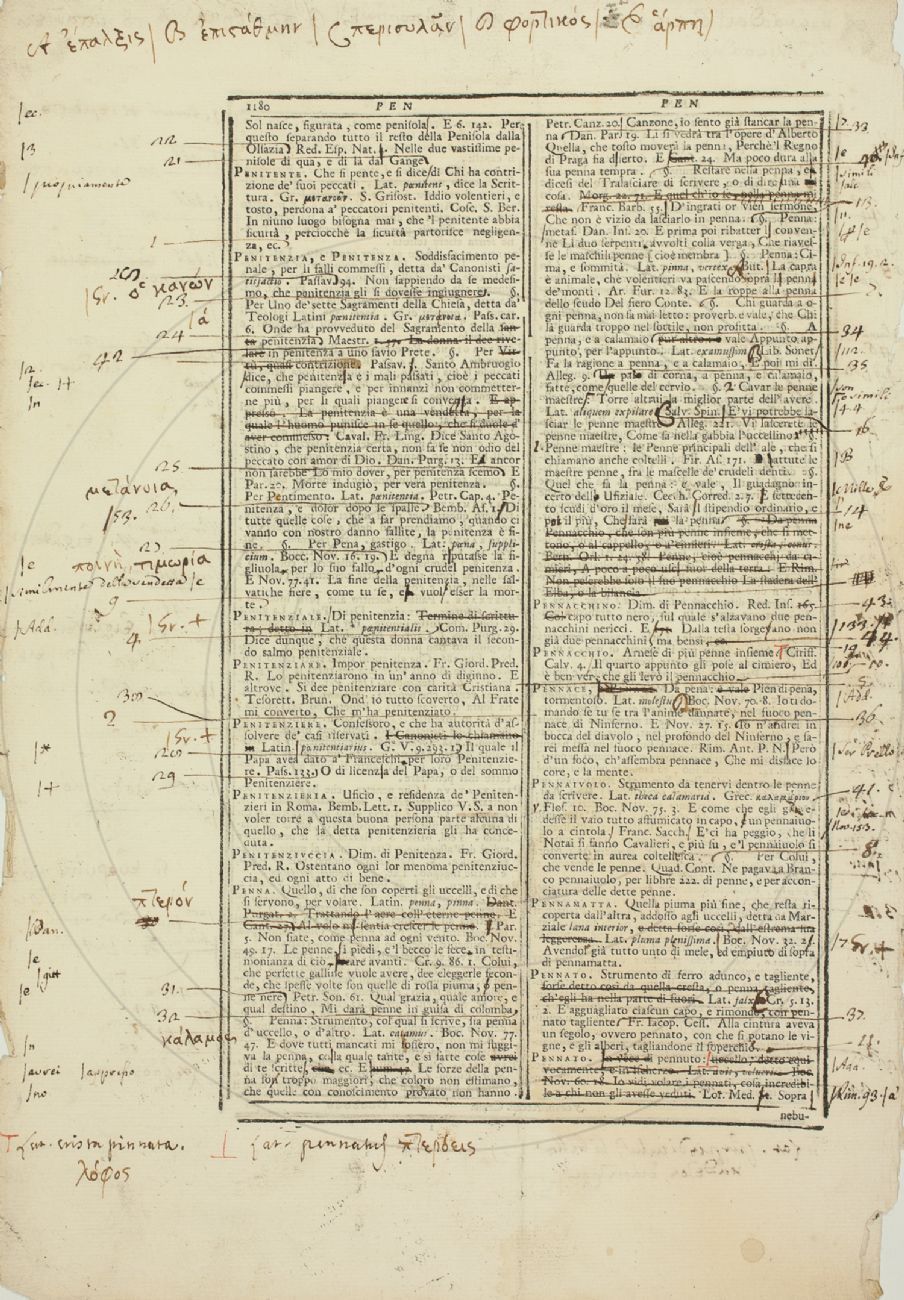 A ἐπαλξις / B ἐπισάθμην / C περισυλᾶν / D φορτικός / E ἅρπη /
1180 PEN PEN
Sol nasce, figurata, come penisola. E 6. 142. Per
questo separando tutto il resto della Penisola dalla
Olsazia. Red. Esp. Nat. Nelle due vastissime pe-
nisole di qua, e di là dal Gange
PENITENTE. Che si pente, e si dice di Chi ha contri-
zione de' suoi peccati. Lat. pœnitent, dice la Scrit-
tura. Gr. S. Grisost. Iddio volentieri, e
tosto, perdona a' peccatori penitenti. Cosc. S. Ber.
In niuno luogo bisogna mai, che 'l penitente abbia
sicurtà, perciocchè la sicurtà partorisce negligen-
za, ec.
PENITENZIA, e PENITENZA. Soddisfacimento pe-
nale, per li falli commessi, detta da' Canonisti sa-
tisfactio. Passav. 94. Non sappiendo da se medesi-
mo, che penitenzia gli si dovesse ingiugnere. §.
Per Uno de' sette Sagramenti della Chiesa, detta da'
Teologi Latini pœnitentia. Gr. μετάνοια. Pass. car.
6. Onde ha provveduto del Sagramento della san-
ta penitenzia. Maestr. 1. 57. La donna il dee rive-
lare in penitenza a uno savio Prete. §. Per Vir-
tù, quasi contrizione. Passav. Santo Ambruogio
dice, che penitenzia e i mali passati, cioè i peccati
commessi piangere, e per innanzi non commetter-
ne più, per li quali piangere si convegna. E ap-
presso. La penitenzia è una vendetta, per la
quale l'huomo punisce in se quello, che si duole d'
aver commesso. Caval. Fr. Ling. Dice Santo Ago-
stino, che penitenzia certa, non fa se non odio del
peccato con amor di Dio. Dan. Purg. 13. E ancor
non sarebbe Lo mio dover, per penitenza scemo. E
Par. 20. Morte indugiò, per vera penitenza. §.
Per Pentimento. Lat. pœnitentia. Petr. Cap. 4. Pe-
nitenza, e dolor dopo le spalle. Bemb. As. 1. Di
tutte quelle cose, che a far prendiamo, quando ci
vanno con nostro danno fallite, la penitenza è fi-
ne. §. Per Pena, gastigo. Lat. pœna, suppli-
cium. Bocc. Nov. 16. 19. E degna riputasse la fi-
gliuola, per lo suo fallo, d'ogni crudel penitenza.
E Nov. 77. 41. La fine della penitenza, nelle sal-
vatiche fiere, come tu se, e vuol esser la mor-
te.
PENITENZIALE. Di penitenza: Termine di scrittu-
ra, detto in Lat. pœnitentialis. Com. Purg. 29.
Dice dunque, che questa donna cantava il secon-
do salmo penitenziale.
PENITENZIARE. Impor penitenza. Fr. Giord. Pred.
R. Lo penitenziarono in un' anno di digiuno. E
altrove. Si dee penitenziare con carità Cristiana.
Tesorett. Brun. Ond' io tutto scoverto, Al Frate
mi converto, Che m'ha penitenziato.
PENITENZIERE. Confessoro, e che ha autorità d'as-
solvere de' casi riservati. I Canonisti lo chiamano
in Latin penitentiarius. G. V. 9. 293. 1. Il quale il
Papa avea dato a' Franceschi, per loro Penitenzie-
re. Pass. 133. O di licenzia del Papa, o del sommo
Penitenziere.
PENITENZIERIA. Uficio, e residenza de' Peniten-
zieri in Roma. Bemb. Lett. 1. Supplico V.S. a non
voler torre a questa buona persona parte alcuna di
quello, che la detta penitenzieria gli ha conce-
duta.
PENITENZIUCCIA. Dim. di Penitenza. Fr. Giord.
Pred. R. Ostentano ogni lor menoma penitenziuc-
cia, ed ogni atto di bene.
PENNA. Quello, di che son coperti gli uccelli, e di che
si servono, per volare. Latin. penna, pinna. Dant.
Purgat. 2. Trattando l'aere coll'eterne penne. E
Cant. 27. Al volo mi sentia crescer le penne. Par.
5. Non siate, come penna ad ogni vento. Boc. Nov.
49. 17. Le penne, i piedi, e 'l becco le fece in testi-
monianza di ciò, gittare avanti. Cr. 9. 86. 1. Colui,
che perfette galline vuole avere, dee eleggerle fecon-
de, che spesse volte son quelle di rossa piuma, o pen-
ne nere. Petr. Son. 61. Qual grazia, quale amore, e
qual destino, Mi darà penne in guisa di colomba.
§. Penna: Strumento, col qual si scrive, sia penna
d'uccello, o d'altro. Lat. calamus. Boc. Nov. 77.
47. E dove tutti mancati mi fossero, non mi fuggi-
va la penna, colla quale tante, e sì fatte cose avrei
di te scritte, ec. E num. 42. Le forze della pen-
na son troppo maggiori, che coloro non estimano,
che quelle con conoscimento provato non hanno.
Petr. Canz. 20. Canzone, io sento già stancar la pen-
na. Dan. Par. 19. Lì si vedrà tra l'opere d'Alberto
Quella, che tosto moverà la penna, Perchè 'l Regno
di Praga fia diserto. E Cant. 24. Ma poco dura alla
sua penna tempra. §. Restare nella penna, e
dicesi del Tralasciare di scrivere, o di dire una
cosa. Morg. 22. 71. E quel ch'io lo, nella penna mi
resta. Franc. Barb. 55. D'ingrati or vien sermone,
Che non è vizio da lasciarlo in penna. §. Penna:
metaf. Dan. Inf. 20. E prima poi ribatter convene-
ne Li duo serpenti avvolti colla verga, Che riaves-
se le maschili penne [cioè membra]. §. Penna: Ci-
ma, e sommità. Lat. pinna, vertex. Butt. La capra
è animale, che volentieri va pascendo sopra la penna
de' monti. Ar. Fur. 12. 83. E la roppe alla penna
dello scudo Del fiero Conte. §. Chi guarda a o-
gni penna, non fa mai letto: proverb. e vale, che Chi
la guarda troppo nel sottile, non profitta. §. A
penna, e a calamaio: pur altro: e vale Appunto ap-
punto, per l'appunto. Lat. examussim. Lib. Sonet.
Fa la ragione a penna, e a calamaio, E poi mi di.
Alleg. 9. Un palo di corna, a penna, e calamaio,
fatte, come quelle del cervio. §. Cavar le penne
maestre. Torre altrui la miglior parte dell'avere.
Lat. aliquem expilare. Salv. Spin. E' vi potrebbe la-
sciar le penne maestre. Alleg. 221. Vi lascerete le
penne maestre, Come fa nella gabbia l'uccellino. §.
Penne maestre: le Penne principali dell'ale, che si
chiamano anche coltelli. Fir. As. 171. Dibattute le
maestre penne, fra le mascelle de' crudeli denti. §.
Quel che fa la penna: e vale, Il guadagno in-
certo dello Ufiziale. Cecch. Corred. 2. 7. E settecen-
to scudi d'oro il mese, Sarà il stipendio ordinario, e
poi il più, Che farà la penna. §. Da penna
Pennacchio, che son più penne insieme, che si met-
tono, o al cappello, o a'cimieri. Lat. crista, conus.
Bern. Orl. 1. 24. 58. Penne, cioè pennacchi da ci-
mieri, A poco a poco uscì fuor della terra. E Rim.
Non peserebbe solo il suo pennacchio La stadera dell'
Elba, o la bilancia.
PENNACCHINO. Dim. di Pennacchio. Red. Ins. 165.
Col capo tutto nero, sul quale s'alzavano due pen-
nacchini nericci. E Dalla testa sorgevano non
già due pennacchini, ma bensì, ec.
PENNACCHIO. Arnese di più penne insieme. Ciriff.
Calv. 4. Il quarto appunto gli pose al cimiero, Ed
è ben ver, che gli levò il pennacchio.
PENNACE, Da pena: e vale Pien di pena,
tormentoso. Lat. molestus. Boc. Nov. 70. 8. Io ti do-
mando se tu se tra l'anime dannate, nel fuoco pen-
nace di Ninferno. E Nov. 27. 15. Io n'andrei in
bocca del diavolo, nel profondo del Ninferno, e sa-
rei messa nel fuoco pennace. Rim. Ant. P. N. Però
d'un foco, ch'assembra pennace, Che mi disface lo
core, e la mente.
PENNAIUOLO. Strumento da tenervi dentro le penne
da scrivere. Lat. theca calamaria. Grec.
Flos. 10. Boc. Nov. 75. 3. E come che egli gli ve-
desse il vaio tutto affumicato in capo, un pennaiuo-
lo a cintola. Franc. Sacch. E' ci ha peggio, che li
Notai si fanno Cavalieri, e più su, e 'l pennaiuolo si
converte in aurea coltellesca. §. Per Colui,
che vende le penne. Quad. Cont. Ne pagava a Bran-
co pennaiuolo, per libbre 222. di penne, e per accon-
ciatura delle dette penne.
PENNAMATTA. Quella piuma più fine, che resta ri-
coperta dall'altra, addosso agli uccelli, detta da Mar-
ziale lana interior, e detta forse così, dall'estrema sua
leggerezza. Lat. pluma plenissima. Boc. Nov. 32. 2.
Avendol già tutto unto di mele, ed empiuto di sopra
di pennamatta.
PENNATO. Strumento di ferro adunco, e tagliente,
forse detto così da quella cresta, o penna tagliente,
ch'egli ha nella parte di fuori. Lat. falx. Cr. 5. 13.
2. E agguagliato ciascun capo, e rimondo, con pen-
nato tagliente. Fr. Iacop. Cess. Alla cintura aveva
un segolo, ovvero pennato, con che si potano le vi-
gne, e gli alberi, tagliandone il soperchio.
PENNATO. In vece di pennuto: uccello; detto equi-
vocamente, e in ischerzo. Lat. Boc.
Nov. 60. 18. Io vidi volare i pennati, cosa incredibi-
le a chi non gli avesse veduti. Lor. Med. Sopra
nebu-
/ec.
22
/3
21
/propiamente
1
Gr. ὁ κανών
23
24
42
25
μετάνοια
/53. 26.
ποινὴ, τιμωρία
9
/Add.
/Gr. +
4.
30
2
/Gr. +
20
29
πτερόν
/Dan.
31.
32
κάλαμος
/aurei
/no
33
113.
34
35
16
14
43.
44.
5.
/Add.
36.
41.
8.
/Gr. +
37.
/Add.
/Rim. 93.
T Lat. crista pinnata.
λόφος
⊥ Lat. pennatus πτερόεις